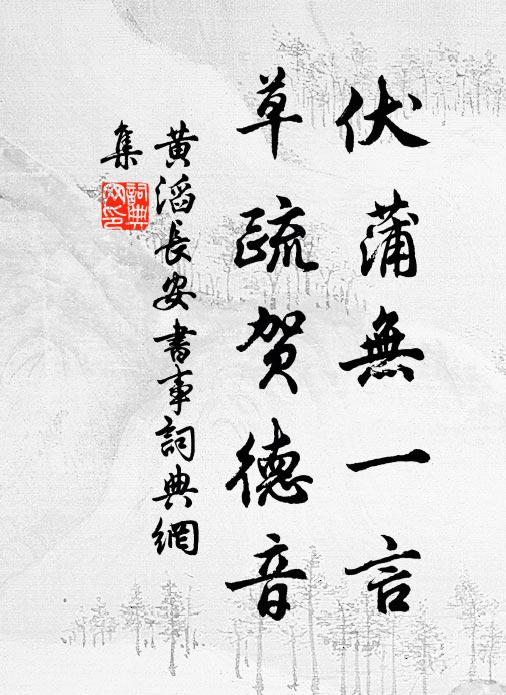 伏蒲無一言
草疏賀德音
黃滔長安書事詞典網
集
詞典網印